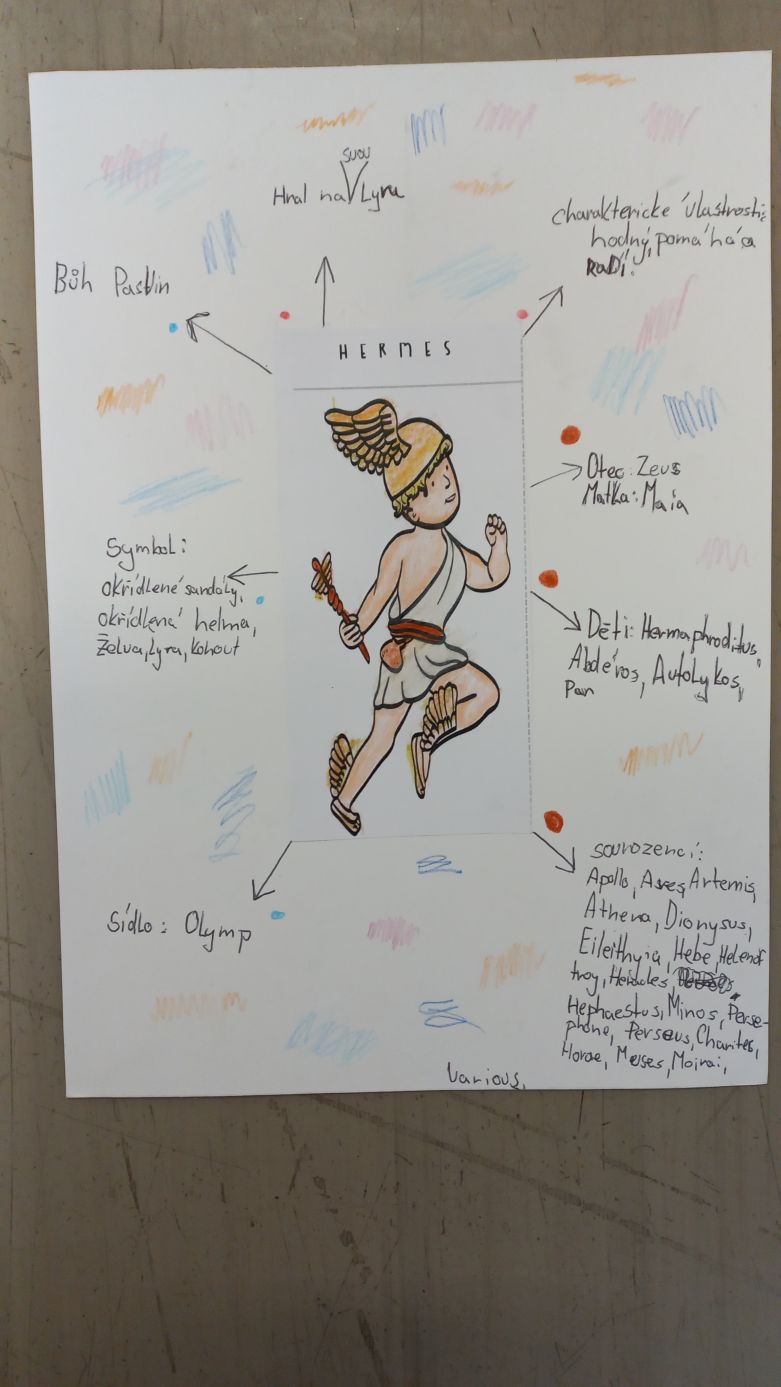 svou
Hral na Lyru
charakterické vlastnosti:
hodný, pomáhá a
radí.
Bůh Pastvin
HERMES
Otec: Zeus
Matka: Maia
Symbol:
okřídlené sandály,
okřídlená helma,
Želva, Lyra, kohout
Děti: Hermaphroditus,
Abdéros, Autolykos,
Pan
Sídlo: Olymp
sourozenci:
Apollo, Ares, Artemis,
Athena, Dionysus,
Eileithyia, Hebe, Helen of
troy, Heracles,
Hephaestus, Minos, Perse-
phone, Perseus, Charites,
Horae, Muses, Moirai,
Various,